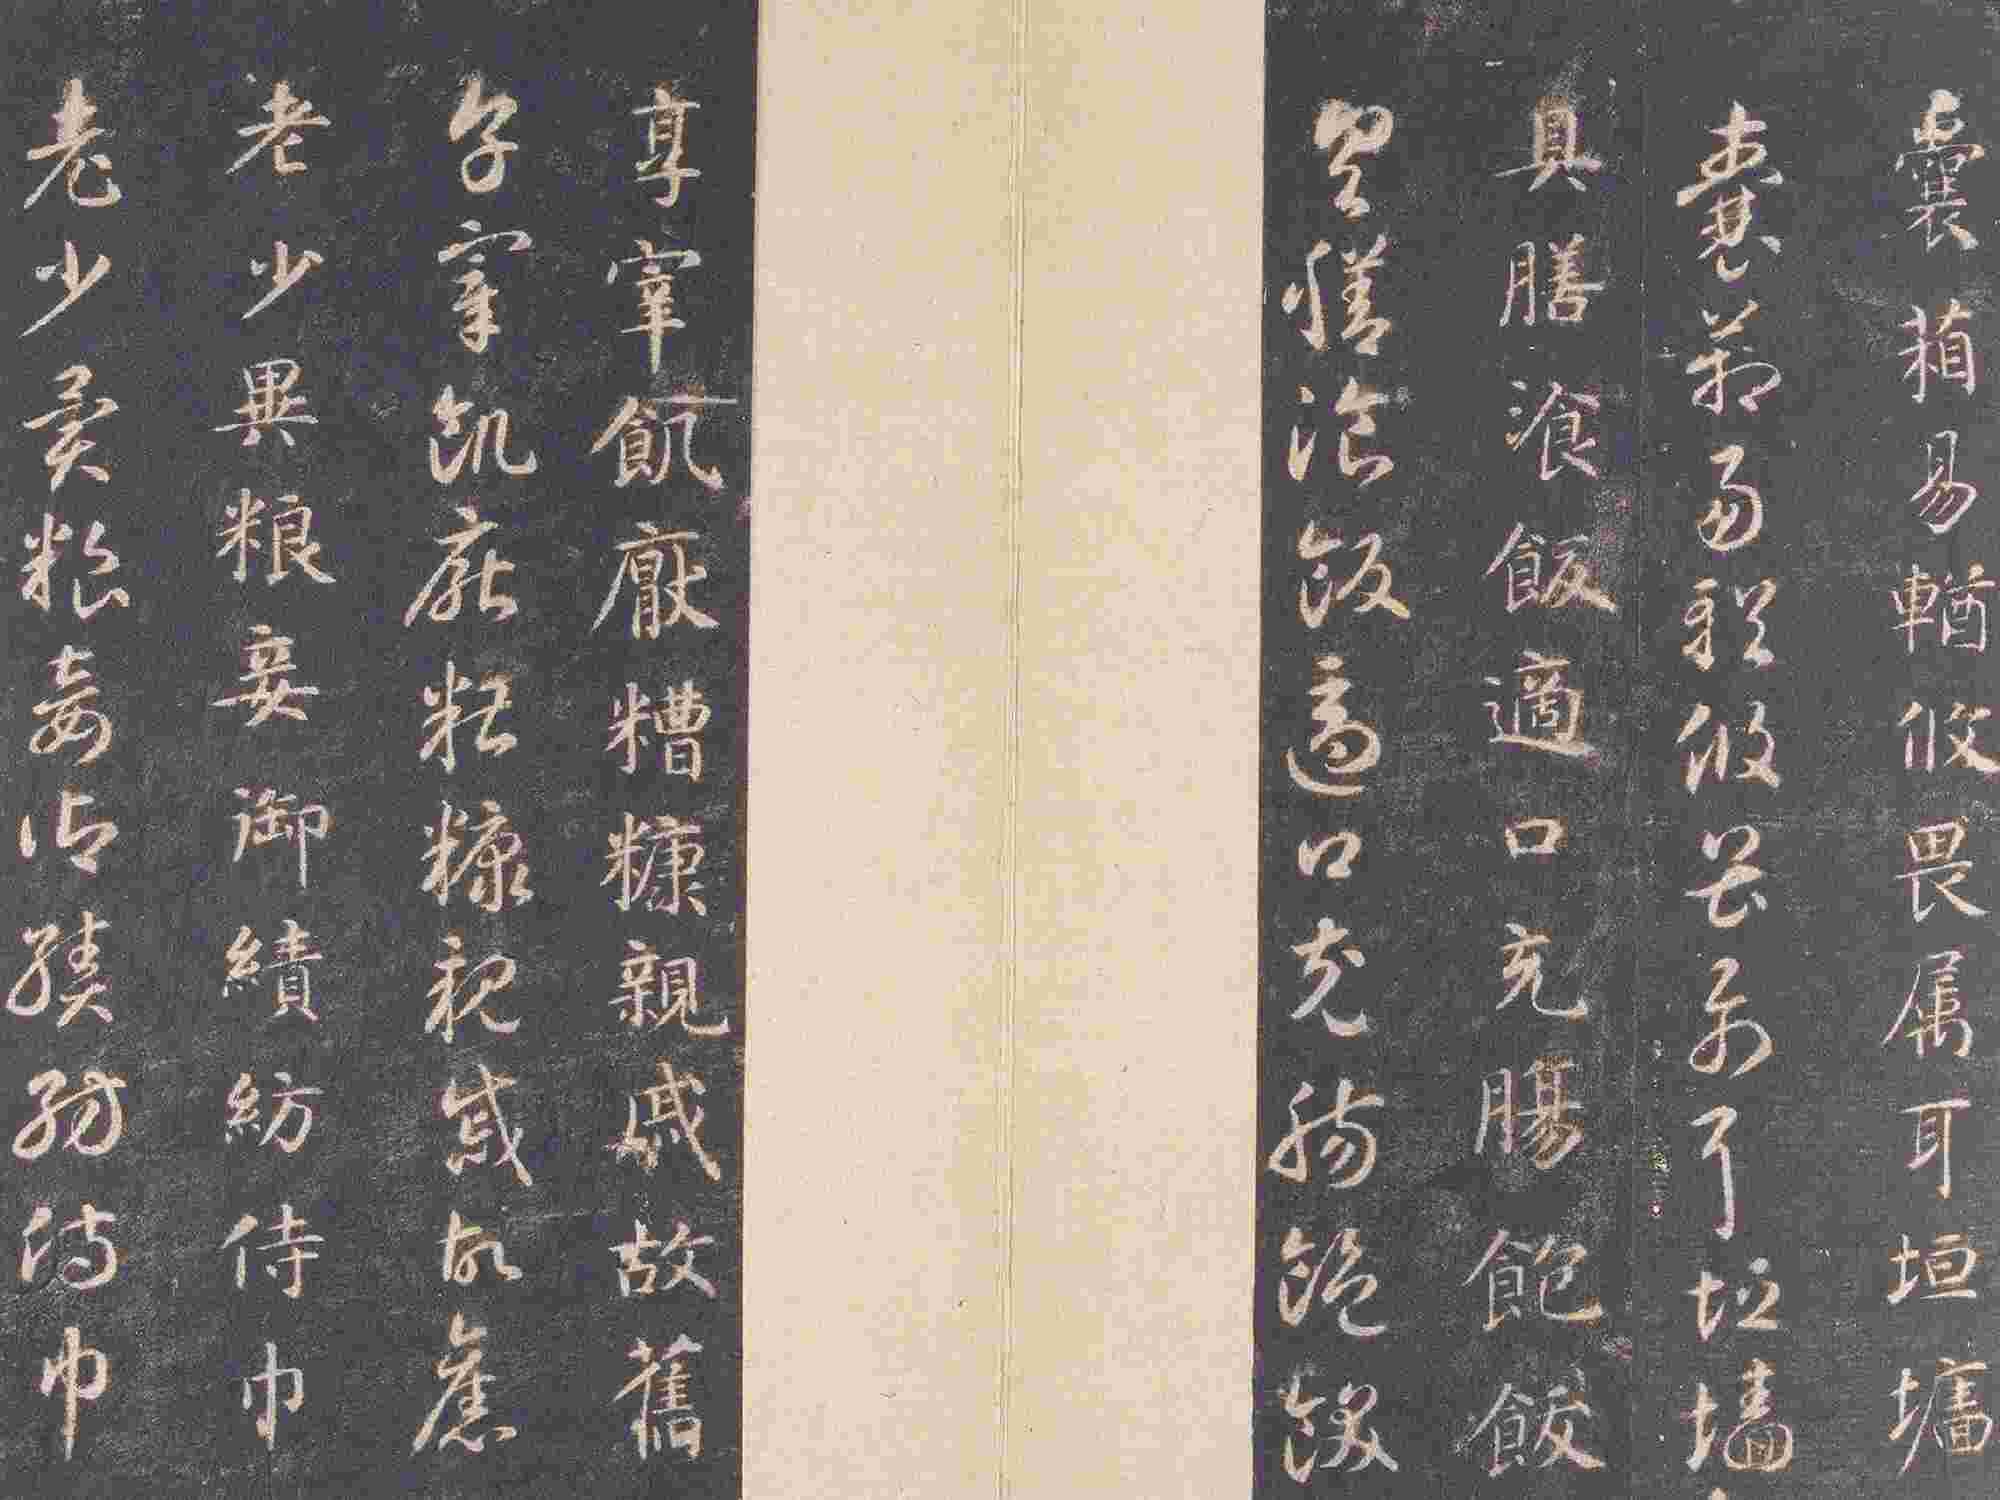 囊箱易輶攸畏属耳垣墻
囊箱易輶攸畏属耳垣墻
具膳飡飯適口充腸飽飫
具膳飡飯適口充腸飽飫
享宰飢厭糟糠親戚故舊
享宰飢厭糟糠親戚故舊
老少異粮妾御績紡侍巾
老少異粮妾御績紡侍巾